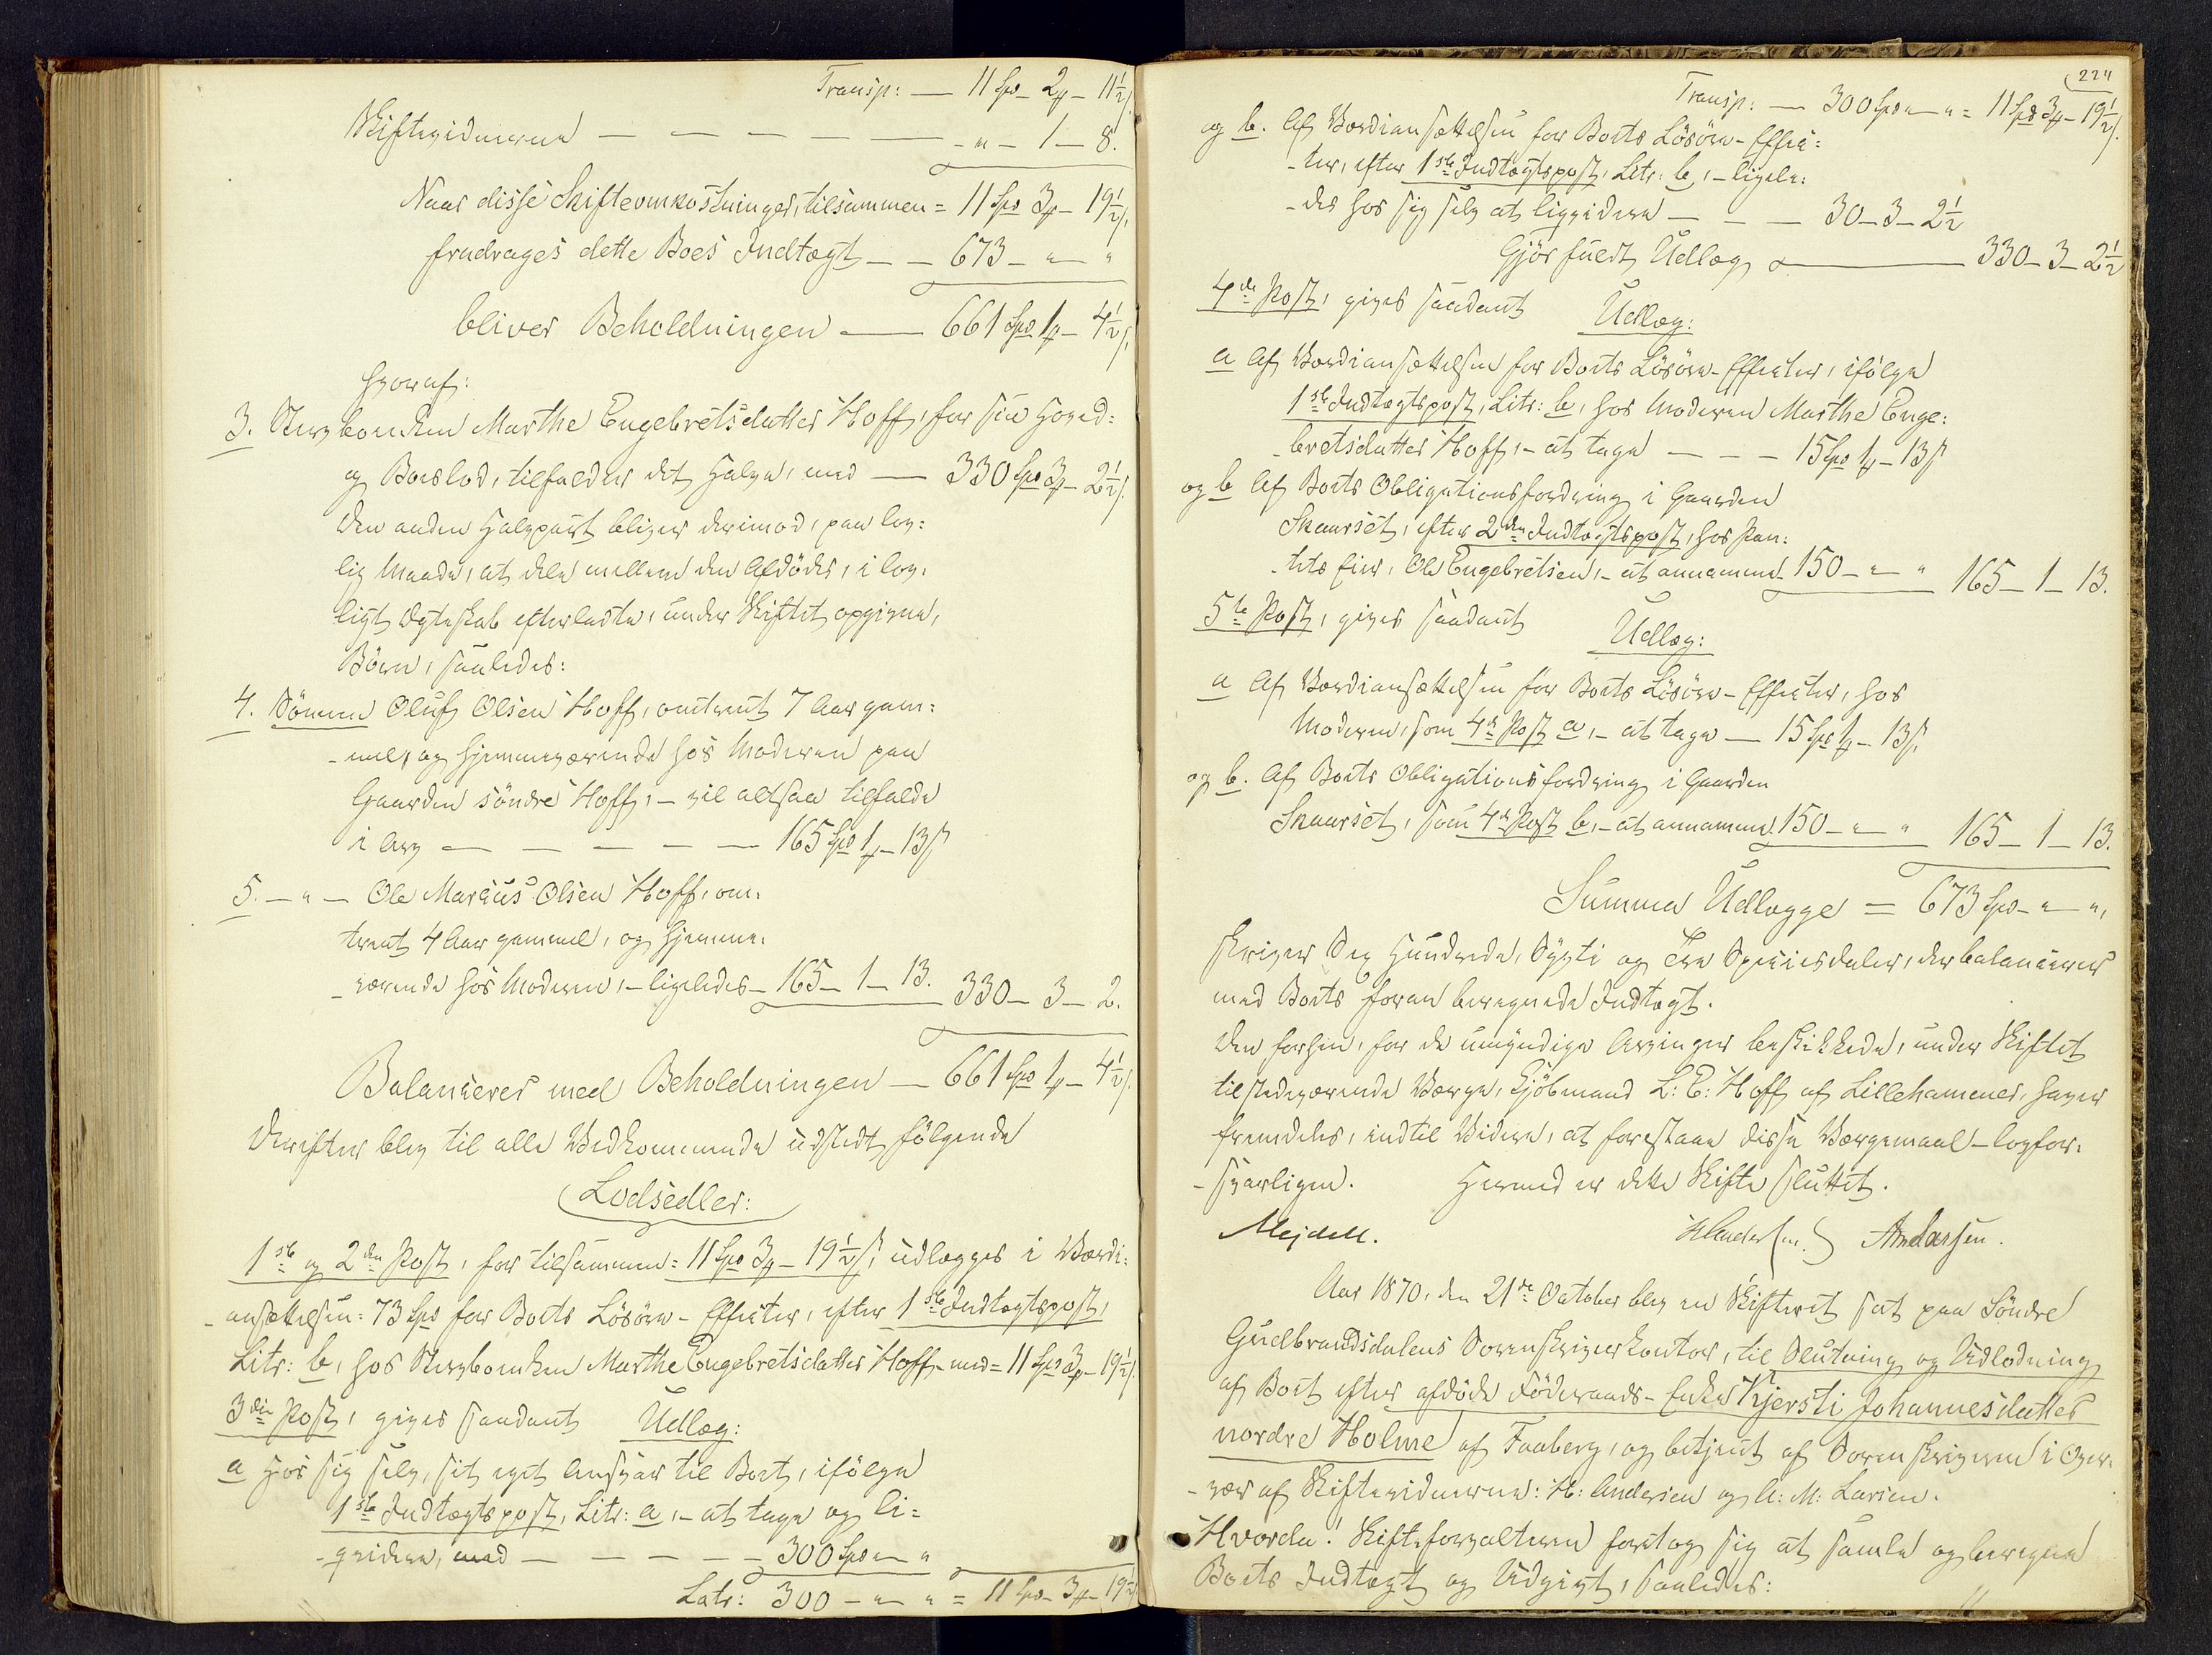 Transp: — 11 Spd – 2 ₰ – 11½ ẞ.
Skiftevidnerne — — — — — — „ — 1 — 8.
Naar disse Skifteomkostninger, tilsammen = 11 Spd 3 ₰ – 19½ ẞ,
fradrages dette Boes Indtægt — — 673 – „ – „
bliver Beholdningen — 661 Spd 1 ₰ – 4½ ẞ,
hvoraf:
3. Stervboenken Marthe Engebretsdatter Hoff, for sin Hoved=
og Boeslod, tilfalder det Halve, med — 330 Spd 3 ₰ – 2½ ẞ.
Den anden Halvpart bliver derimod, paa lov=
lig Maade, at dele mellem den Afdødes, i lov=
ligt Ægteskab efterladte, under Skiftet opgivne,
Börn, saaledes:
4. Sönnen Oluf Olsen Hoff, omtrent 7 Aar gam=
-mel, og hjemmeværende hos Moderen paa
Gaarden söndre Hoff, – vil altsaa tilfalde
i Arv — — — — — 165 Spd 1 ₰ – 13 ẞ
5. — „ — Ole Marius Olsen Hoff, om=
trent 4 Aar gammel, og hjemme=
-værende hos Moderen, – ligeledes – 165 – 1 – 13. 330 – 3 – 2.
Balancerer med Beholdningen — 661 Spd 1 ₰ – 4½ ẞ.
Derefter blev til alle Vedkommende udstedt følgende
Lodsedler:
1ste og 2den Post, for tilsammen = 11 Spd 3 ₰ – 19½ ẞ, udlægges i Værdi=
-ansættelsen = 73 Spd for Boets Lösöre-Effecter, efter 1ste Indtægtspost,
Litr: b, hos Stervboenken Marthe Engebretsdatter Hoff – med = 11 Spd 3 ₰ – 19½ ẞ.
3die Post, gives saadant Udlæg:
a Hos sig selv, sit eget Ansvar til Boet, ifölge
1ste Indtægtspost, Litr: a, – at tage og li=
-qvidere, med — — — — — 300 Spd „ – „
Latr: 300 – „ – „ = 11 Spd – 3 ₰ – 19½
224
Transp: — 300 Spd „ – „ = 11 Spd 3 ₰ – 19½ ẞ.
og b. Af Værdiansættelsen for Boets Lösöre-Effec=
-ter, efter 1ste Indtægtspost, Litr: b, – ligele=
-des hos sig selv at liqvidere — — — 30 – 3 – 2½
Gjör fuldt Udlæg — 330 – 3 – 2½
4de Post, gives saadant Udlæg:
a Af Værdiansættelsen for Boets Lösöre-Effecter, ifölge
1ste Indtægtspost, Litr: b, hos Moderen Marthe Enge=
-bretsdatter Hoff, – at tage — — — 15 Spd 1 ₰ – 13 ẞ
og b Af Boets Obligationsfordring i Gaarden
Skaarset, efter 2den Indtægtspost, hos Pan=
-tets Eier, Ole Engebretsen, – at annamme – 150 – „ – „ 165 – 1 – 13.
5te Post, gives saadant Udlæg:
a Af Værdiansættelsen for Boets Lösöre-Effecter, hos
Moderen, som 4de Post a, – at tage — 15 Spd 1 ₰ – 13 ẞ,
og b. Af Boets Obligationsfordring i Gaarden
Skaarset, som 4de Post b, – at annamme 150 – „ – „ 165 – 1 – 13.
Summa Udlægge = 673 Spd – „ – „,
skriver Sex Hundrede, Sytti og Tre Speciesdaler, der balancerer
med Boets foran beregnede Indtægt.
Den forhen, for de umyndige Arvinger beskikkede, under Skiftet
tilstedeværende Værge, Kjöbmand L: E: Hoff af Lillehammer, haver
fremdeles, indtil Videre, at forestaae disse Værgemaal – lovfor=
-svarligen. Hermed er dette Skifte sluttet.
Mejdell. H Andersen. AmLarsen.
Aar 1870, den 21de October blev en Skifteret sat paa Söndre
Gudbrandsdalens Sorenskriverkontor, til Slutning og Udlodning
af Boet efter afdöde Föderaads-Enke Kjersti Johannesdatter
nordre Holme af Faaberg, og betjent af Sorenskriveren i Over=
-vær af Skiftevidnerne: H: Andersen og A: M: Larsen.
Hvorda! Skifteforvalteren foretog sig at samle og beregne
Boets Indtægt og Udgivt, saaledes: